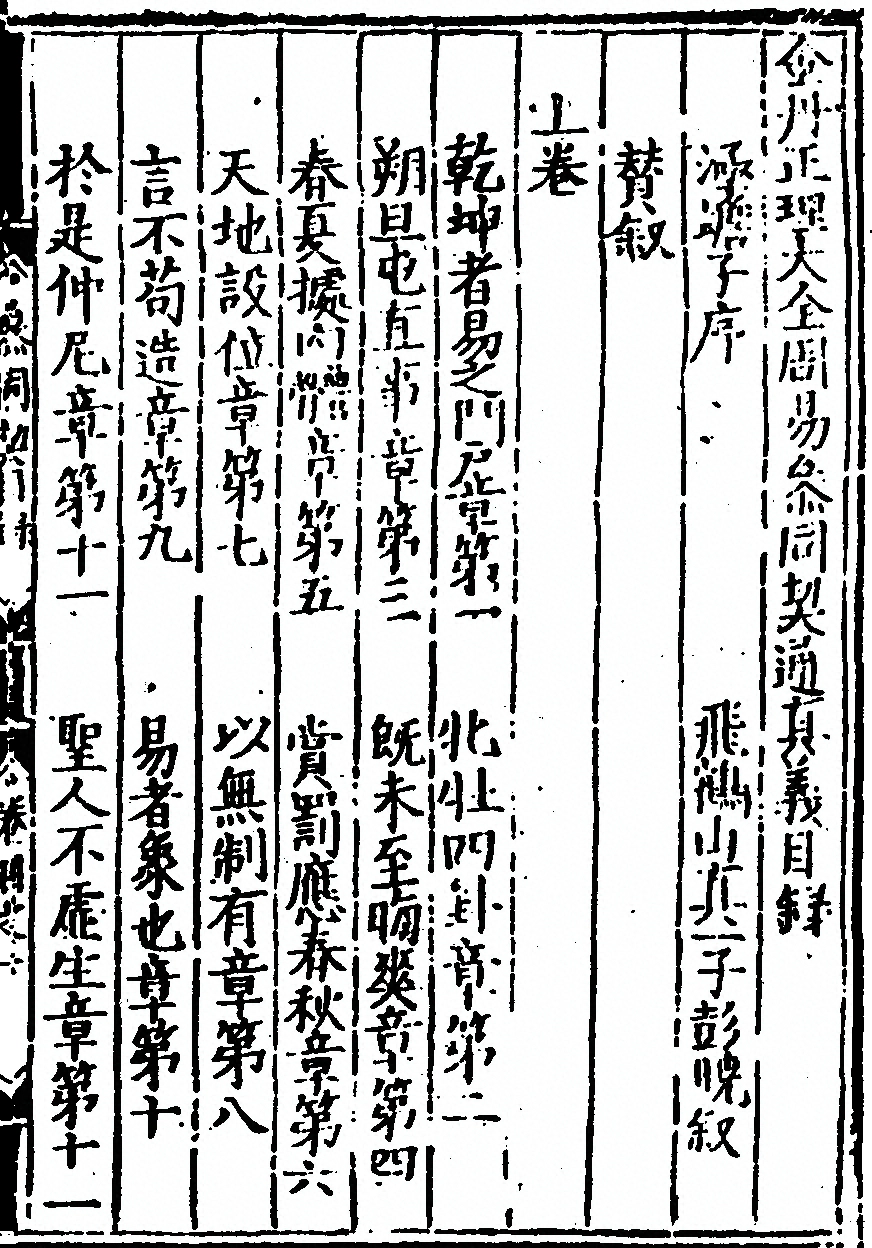 金丹正理大全周易參同契通真義目錄
涵蟾子序 飛鶴山真一子彭曉叙
賛叙
上卷
乾坤者易之門戶章第一 牝牡四卦章第二
朔旦屯直事章第三 旣未至晦爽章第四
春夏據內體章第五 賞罰應春秋章第六
天地設位章第七 以無制有章第八
言不苟造章第九 易者象也章第十
於是仲尼章第十一 聖人不虛生章第十一